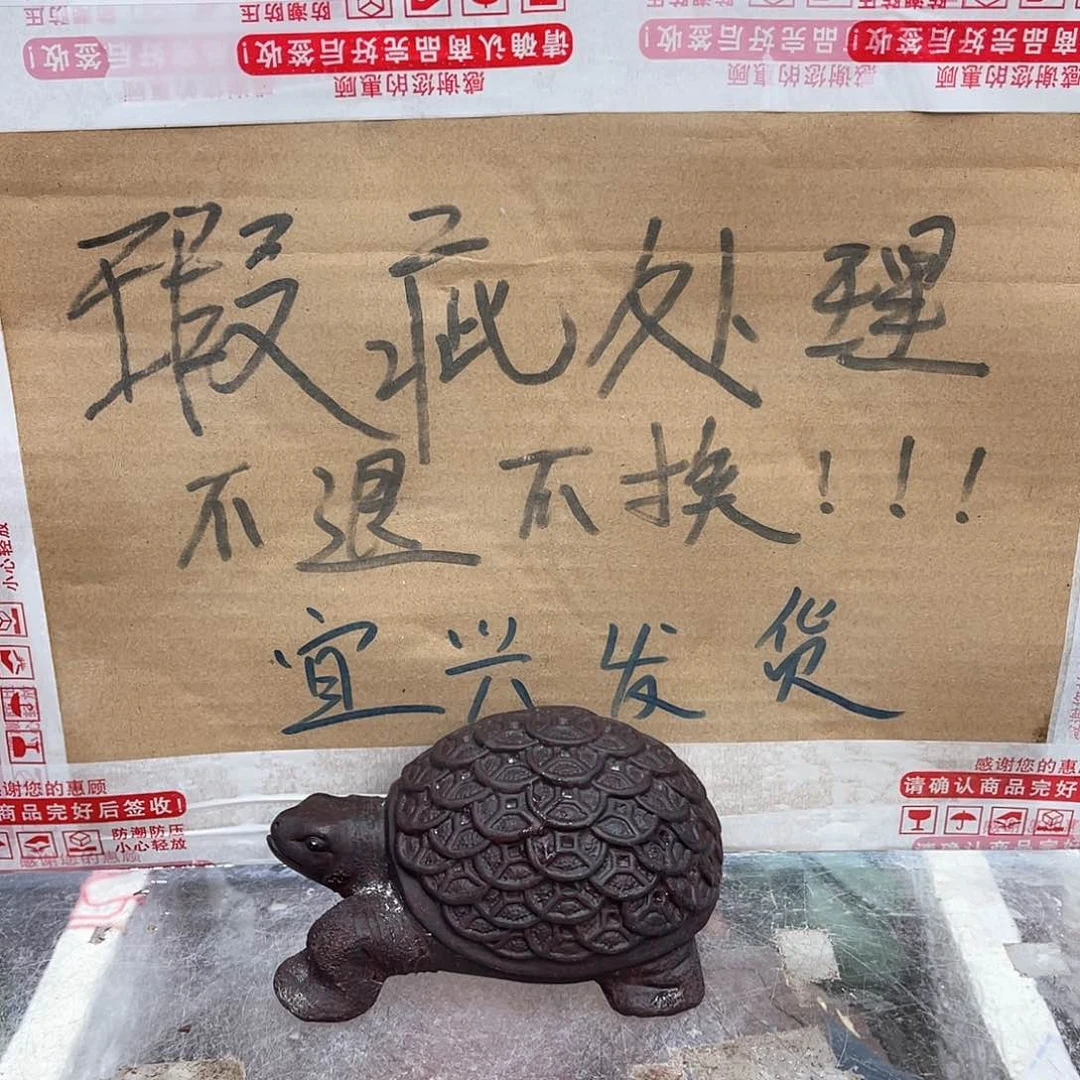 防潮防压
请确认商品完好后签收!
感谢您的惠顾
请确认商品完好后签收!
感谢您的惠顾
瑕疵处理
不退不换!!!
宜兴发货
小心轻放
感谢您的惠顾
商品完好后签收!
防潮防压
小心轻放
感谢您的惠
请确认商品完好